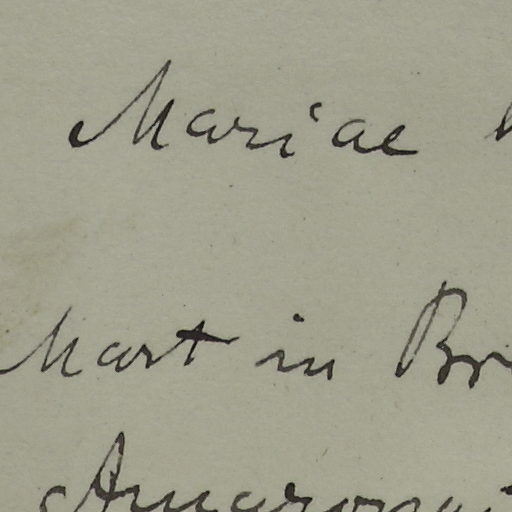 Mariae
Mart in Br